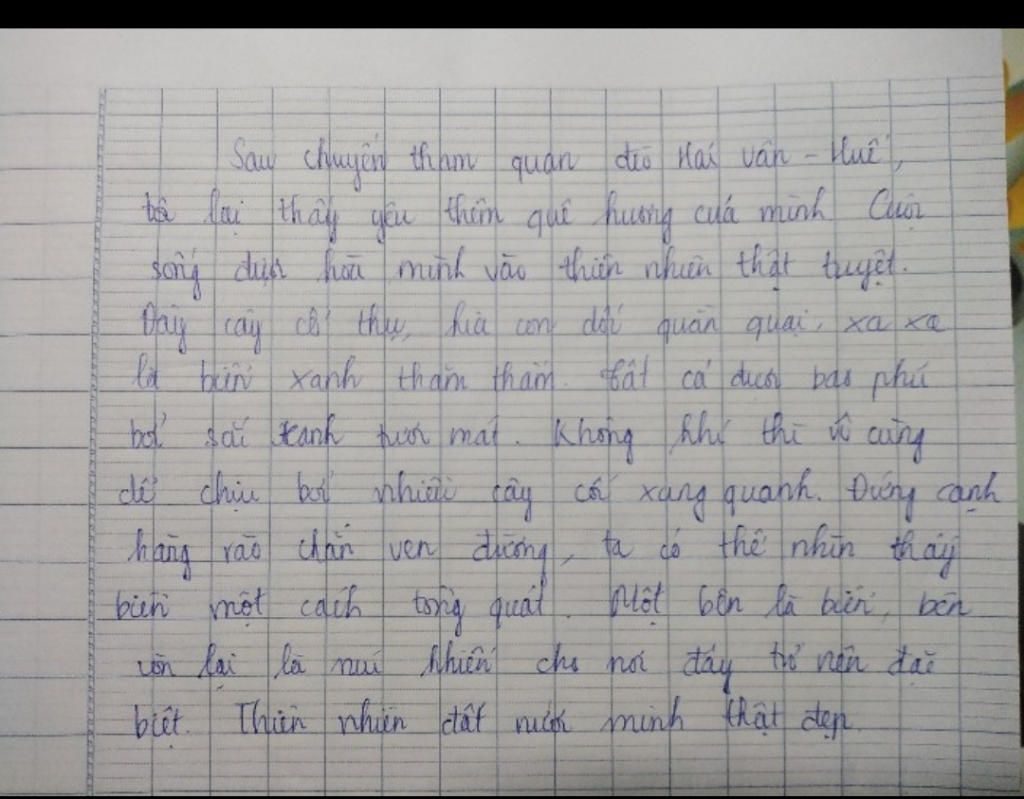 Sau chuyến tham quan đèo Hải Vân - Huế,
ta lại thấy yêu thêm quê hương của mình Cuộc
sống được hoà mình vào thiên nhiên thật tuyệt.
Dãy cây cổ thụ, hià con dốc quằn quại, xa xa
là biển xanh thăm thẳm. Tất cả được bao phủ
bởi sắc xanh tươi mát. Không khí thì vô cùng
dễ chịu bởi nhiều cây cối xung quanh. Đứng cạnh
hàng rào chắn ven đường, ta có thể nhìn thấy
biển một cách tổng quát. Một bên là biển, bên
còn lại là núi khiến cho nơi đây trở nên đặc
biệt. Thiên nhiên đất nước mình thật đẹp.